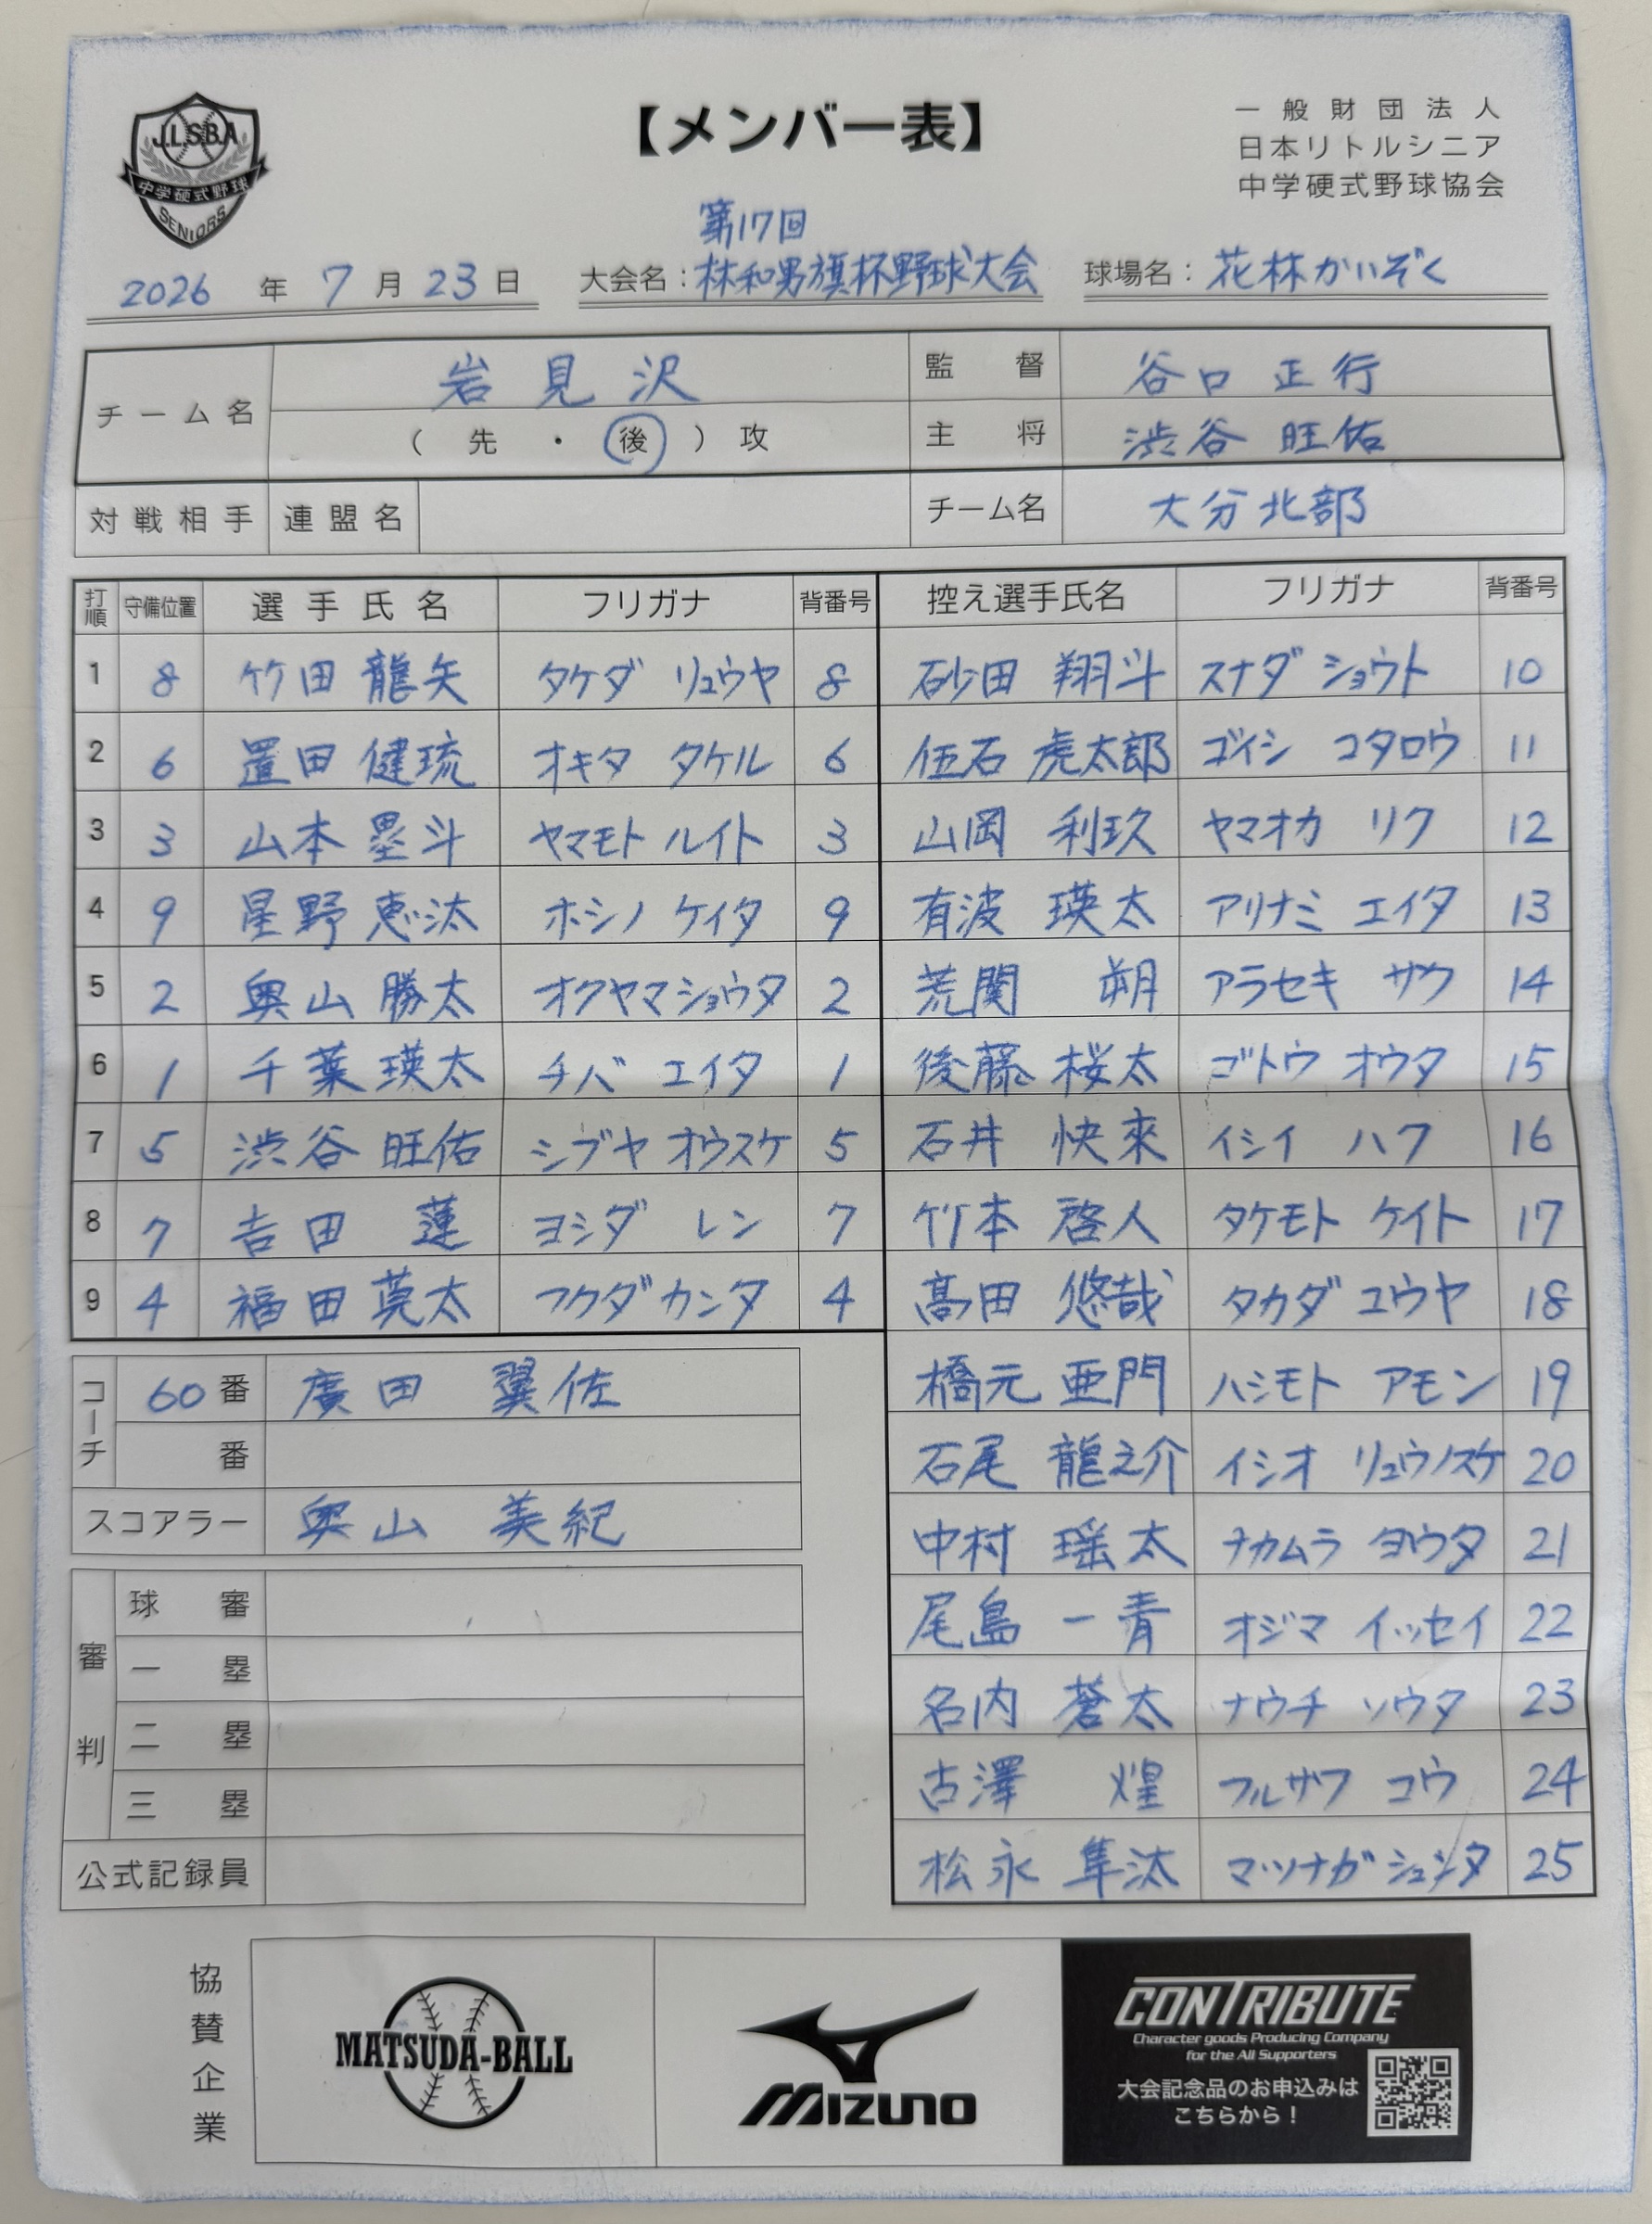 J.L.S.B.A
中学硬式野球
SENIORS
【メンバー表】
一般財団法人
日本リトルシニア
中学硬式野球協会
第17回
2026年7月23日 大会名：林和男旗杯野球大会 球場名：花林かいぞく
チーム名 岩見沢 監督 谷口 正行
（先・後）攻 主将 渋谷 旺佑
対戦相手 連盟名 チーム名 大分北部
打順 守備位置 選手氏名 フリガナ 背番号 控え選手氏名 フリガナ 背番号
1 8 竹田 龍矢 タケダ リュウヤ 8 砂田 翔斗 スナダ ショウト 10
2 6 置田 健琉 オキタ タケル 6 伍石 虎太郎 ゴイシ コタロウ 11
3 3 山本 塁斗 ヤマモト ルイト 3 山岡 利玖 ヤマオカ リク 12
4 9 星野 恵汰 ホシノ ケイタ 9 有波 瑛太 アリナミ エイタ 13
5 2 奥山 勝太 オクヤマ ショウタ 2 荒関 朔 アラセキ サク 14
6 1 千葉 瑛太 チバ エイタ 1 後藤 桜太 ゴトウ オウタ 15
7 5 渋谷 旺佑 シブヤ オウスケ 5 石井 快來 イシイ ハク 16
8 7 吉田 蓮 ヨシダ レン 7 竹本 啓人 タケモト ケイト 17
9 4 福田 莞太 フクダ カンタ 4 髙田 悠哉 タカダ ユウヤ 18
コーチ 60番 廣田 翼佐 橋元 亜門 ハシモト アモン 19
番 石尾 龍之介 イシオ リュウノスケ 20
スコアラー 奥山 美紀 中村 瑶太 ナカムラ ヨウタ 21
審判 球審 尾島 一青 オジマ イッセイ 22
一塁 名内 蒼太 ナウチ ソウタ 23
二塁 古澤 煌 フルサワ コウ 24
三塁 松永 隼汰 マツナガ シュンタ 25
公式記録員
協賛企業
MATSUDA-BALL
MIZUNO
CONTRIBUTE
Character goods Producing Company
for the All Supporters
大会記念品のお申込みは
こちらから！